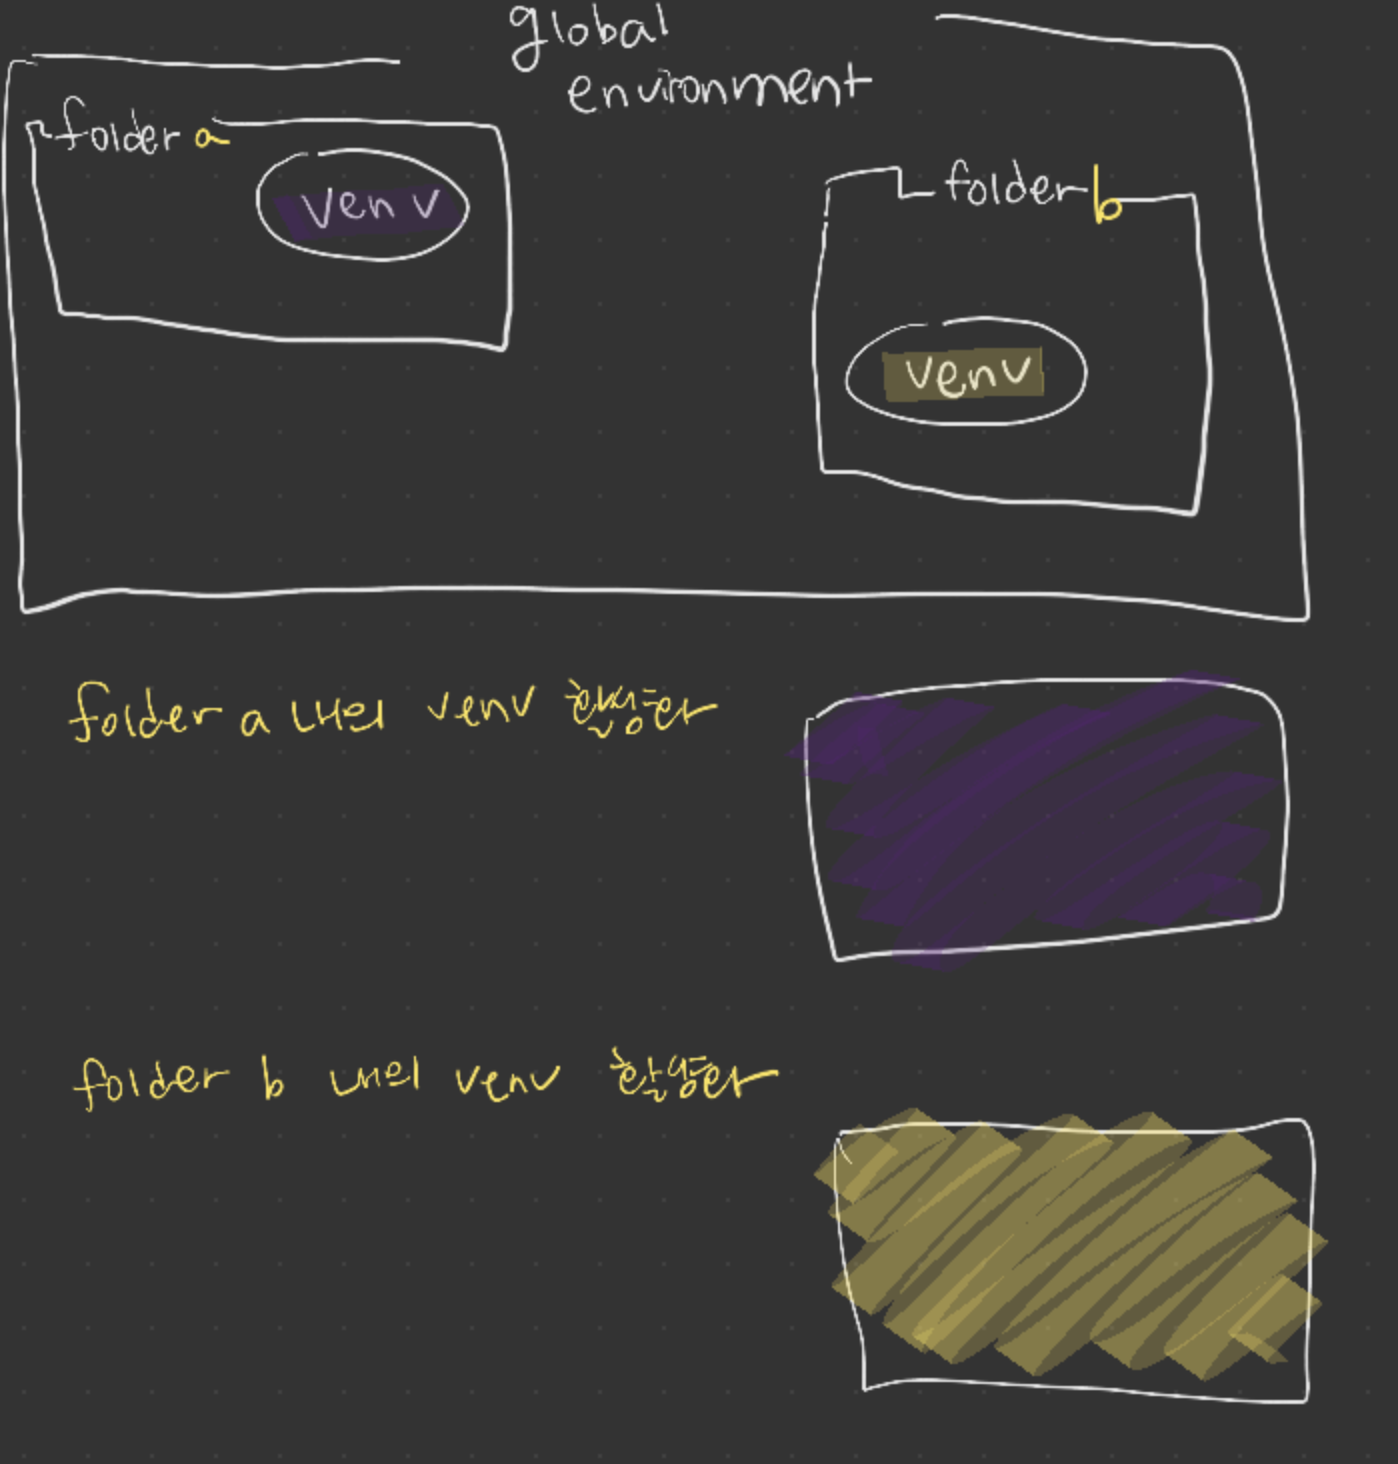 global
environment
folder a
venv
folder b
venv
folder a 내의 venv 활성화
folder b 내의 venv 활성화